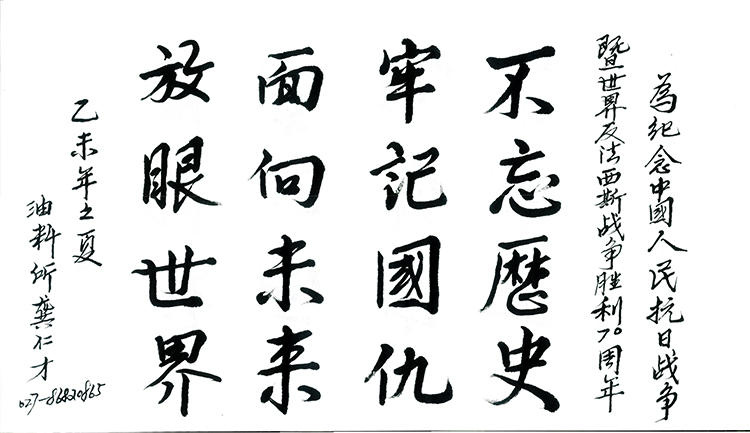 為纪念中國人民抗日战争
暨世界反法西斯战争胜利70周年
不忘歷史
牢記國仇
面向未来
放眼世界
乙未年之夏
油料所龚仁才
027-86820865